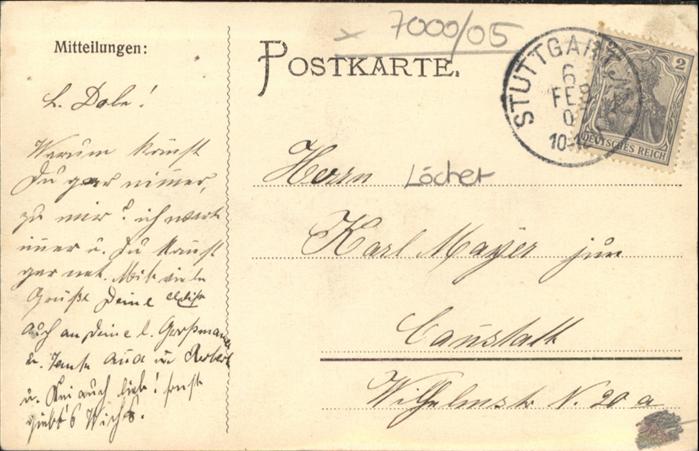 7000/05
Mitteilungen:
POSTKARTE.
STUTTGART
6
FEB
10-12
2
DEUTSCHES REICH
L. Dole!
Warum kommst
Du gar nimmer,
zu mir? ich warte
immer u. Du kommst
gar net. Mit viele
Grüße Deine
auch an Deine l. Großmama
u. Tante
u. sei auch lieb! sonst
giebt's Wichs.
Herrn Löcher
Karl Mayer jun
Cannstatt
Wilhelmstr. N. 20 a